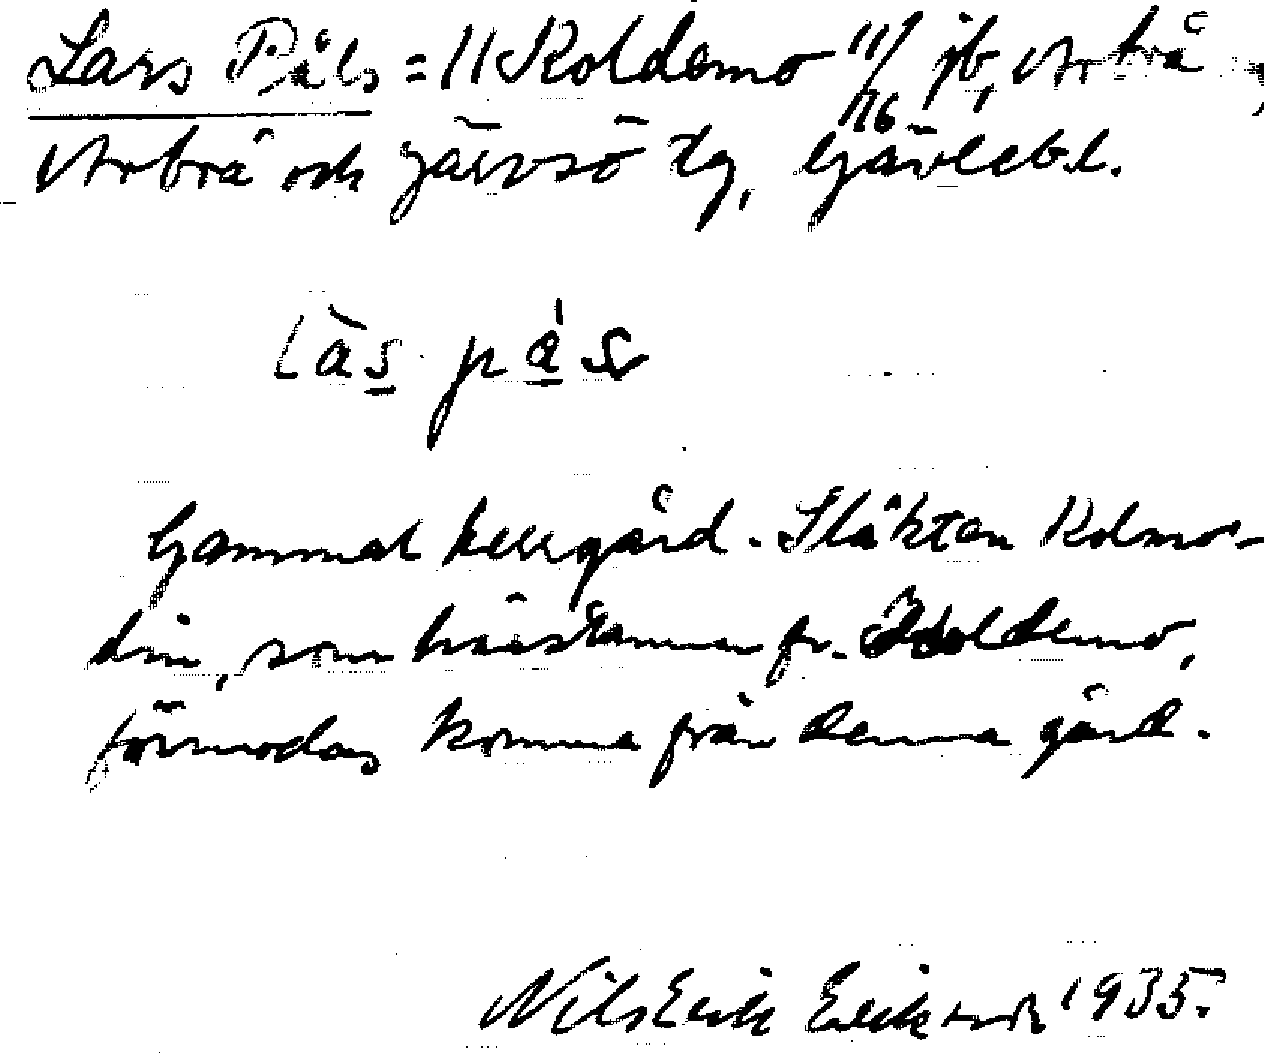 Lars Påls = 11 Koldemo 11/16 jb, Arbrå,
Arbrå och Järvsö tg, Gävlebl.
läs pås
Gammal herrgård. Släkten Kolmo-
din, som härstammar fr. Koldemo,
förmodas komma från denna gård.
Nils Erik Eriksson 1935.